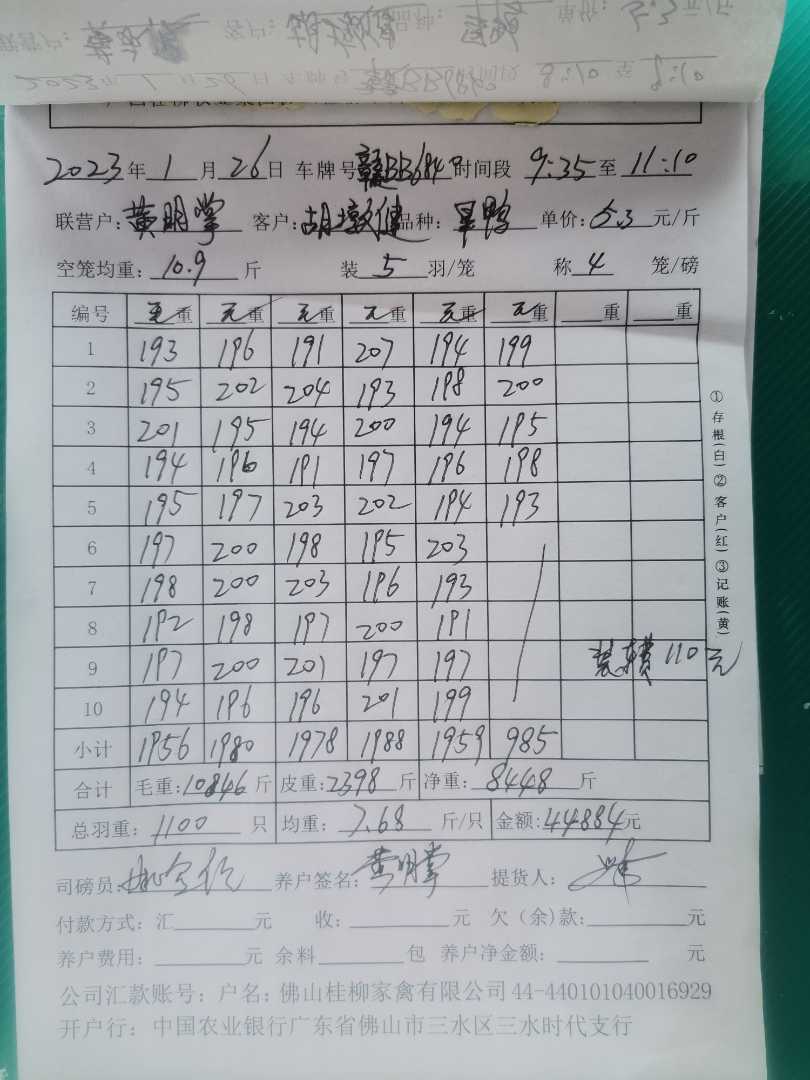 2023年1月26日 车牌号赣BB684 时间段 9:35至11:10
联营户:黄明掌 客户:胡墩健 品种:旱鸭 单价:5.3元/斤
空笼均重:10.9斤 装5羽/笼 称4笼/磅
编号 毛重 毛重 毛重 毛重 毛重 毛重 重 重
1 193 196 191 207 194 199
2 195 202 204 193 198 200
3 201 195 194 200 194 195
4 194 196 191 197 196 198
5 195 197 203 202 194 193
6 197 200 198 195 203
7 198 200 203 196 193
8 192 198 197 200 191
9 197 200 201 197 197 装车费110元
10 194 196 196 201 199
小计 1956 1980 1978 1988 1959 985
合计 毛重:10846斤 皮重:2398斤 净重:8448斤
总羽重:1100只 均重:7.68斤/只 金额:44884元
司磅员: 养户签名:黄明掌 提货人:
付款方式:汇 元 收: 元 欠(余)款: 元
养户费用: 元 余料 包 养户净金额: 元
公司汇款账号:户名:佛山桂柳家禽有限公司 44-440101040016929
开户行:中国农业银行广东省佛山市三水区三水时代支行
①存根(白)②客户(红)③记账(黄)